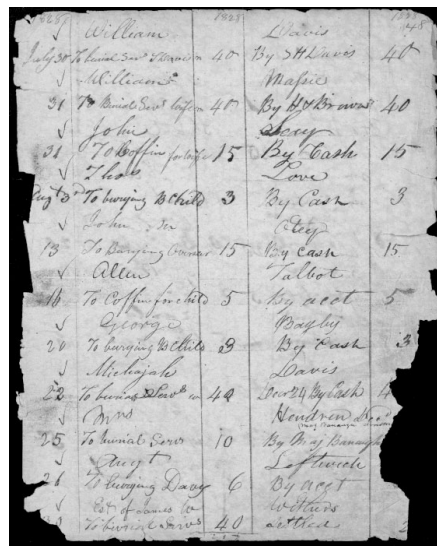 1828 1828 1828
William Davis 48
July 30 To burial Servs 40 By S H Davis 40
William Massie
31 To Burial Servs 40 By H Brown 40
John Lacy
31 To Coffin for wife 15 By Cash 15
Thos Love
Augt 3d To burying B Child 3 By Cash 3
John Senr Otey
13 To Burying Owner 15 By Cash 15
Allen Talbot
16 To Coffin for child 5 By acct 5
George Bagby
20 To burying B Child 3 By Cash 3
Michajah Davis
22 To burial Servs 40 Decr 24 By Cash 4
Mrs Hendren Decd
25 To burial Servs 10 By Maj
Augt Leftwich
26 To burying Davy 6 By acct
Est of James W
To burial Servs 40 settled